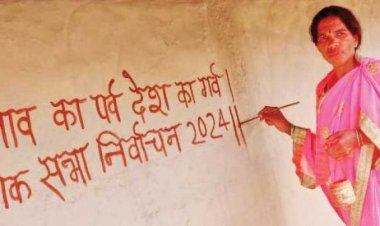 नाव का पर्व देश का गर्व |
ोक सभा निर्वाचन 2024||